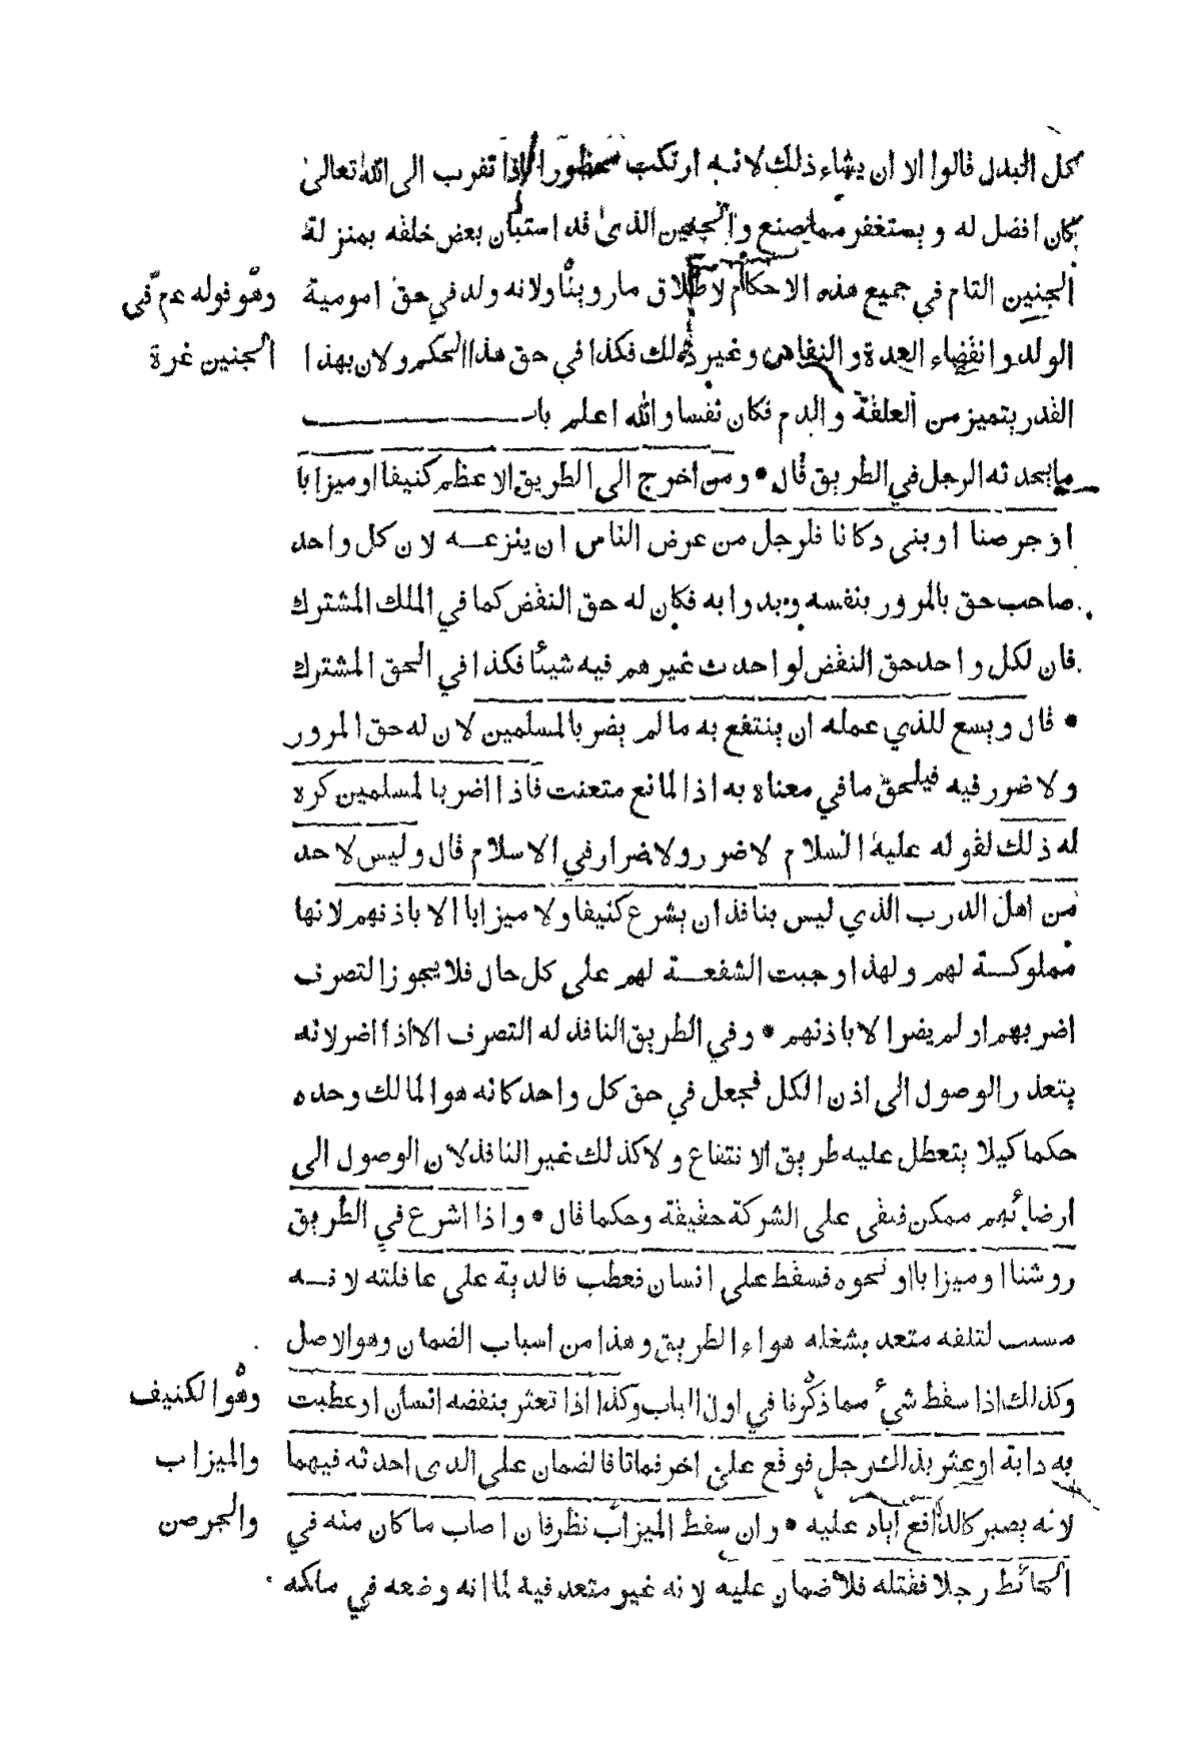 كل البدل قالوا الا ان يشاء ذلك لانه ارتكب محظورا فاذا تقرب الى الله تعالى
كان افضل له ويستغفر مما يصنع والجنين الذى قد استبان بعض خلقه بمنزلة
الجنين التام في جميع هذه الاحكام لاطلاق ماروينا ولانه ولد في حق امومية
وهو قوله عم فى
الولد وانقضاء العدة والنفاس وغير ذلك فكذا في حق هذا الحكم ولان بهذا
الجنين غرة
القدر يتميز من العلقة والدم فكان نفسا والله اعلم باب
ما يحدثه الرجل في الطريق قال • ومن اخرج الى الطريق الاعظم كنيفا او ميزابا
او جرصنا او بنى دكانا فلرجل من عرض الناس ان ينزعه لان كل واحد
صاحب حق بالمرور بنفسه وبدوابه فكان له حق النقض كما في الملك المشترك
فان لكل واحد حق النقض لو احدث غيرهم فيه شيئا فكذا في الحق المشترك
• قال ويسع للذي عمله ان ينتفع به ما لم يضر بالمسلمين لان له حق المرور
ولا ضرر فيه فيلحق ما في معناه به اذ المانع متعنت فاذا اضر بالمسلمين كره
له ذلك لقوله عليه السلام لا ضرر ولا ضرار في الاسلام قال وليس لاحد
من اهل الدرب الذي ليس بنافذ ان يشرع كنيفا ولا ميزابا الا باذنهم لانها
مملوكة لهم ولهذا وجبت الشفعة لهم على كل حال فلا يجوز التصرف
اضر بهم او لم يضر الا باذنهم • وفي الطريق النافذ له التصرف الا اذا اضر لانه
يتعذر الوصول الى اذن الكل فجعل في حق كل واحد كانه هو المالك وحده
حكما كيلا يتعطل عليه طريق الانتفاع ولا كذلك غير النافذ لان الوصول الى
ارضائهم ممكن فبقى على الشركة حقيقة وحكما قال • واذا اشرع في الطريق
روشنا او ميزابا او نحوه فسقط على انسان فعطب فالدية على عاقلته لانه
مسبب لتلفه متعد بشغله هواء الطريق وهذا من اسباب الضمان وهو الاصل
وكذلك اذا سقط شيء مما ذكرنا في اول الباب وكذا اذا تعثر بنقضه انسان او عطبت
وهو الكنيف
به دابة او عثر بذلك رجل فوقع على اخر فماتا فالضمان على الذى احدثه فيهما
والميزاب
لانه يصير كالدافع اياه عليه • وان سقط الميزاب نظر فان اصاب ما كان منه في
والجرصن
الحائط رجلا فقتله فلا ضمان عليه لانه غير متعد فيه لما انه وضعه في ملكه